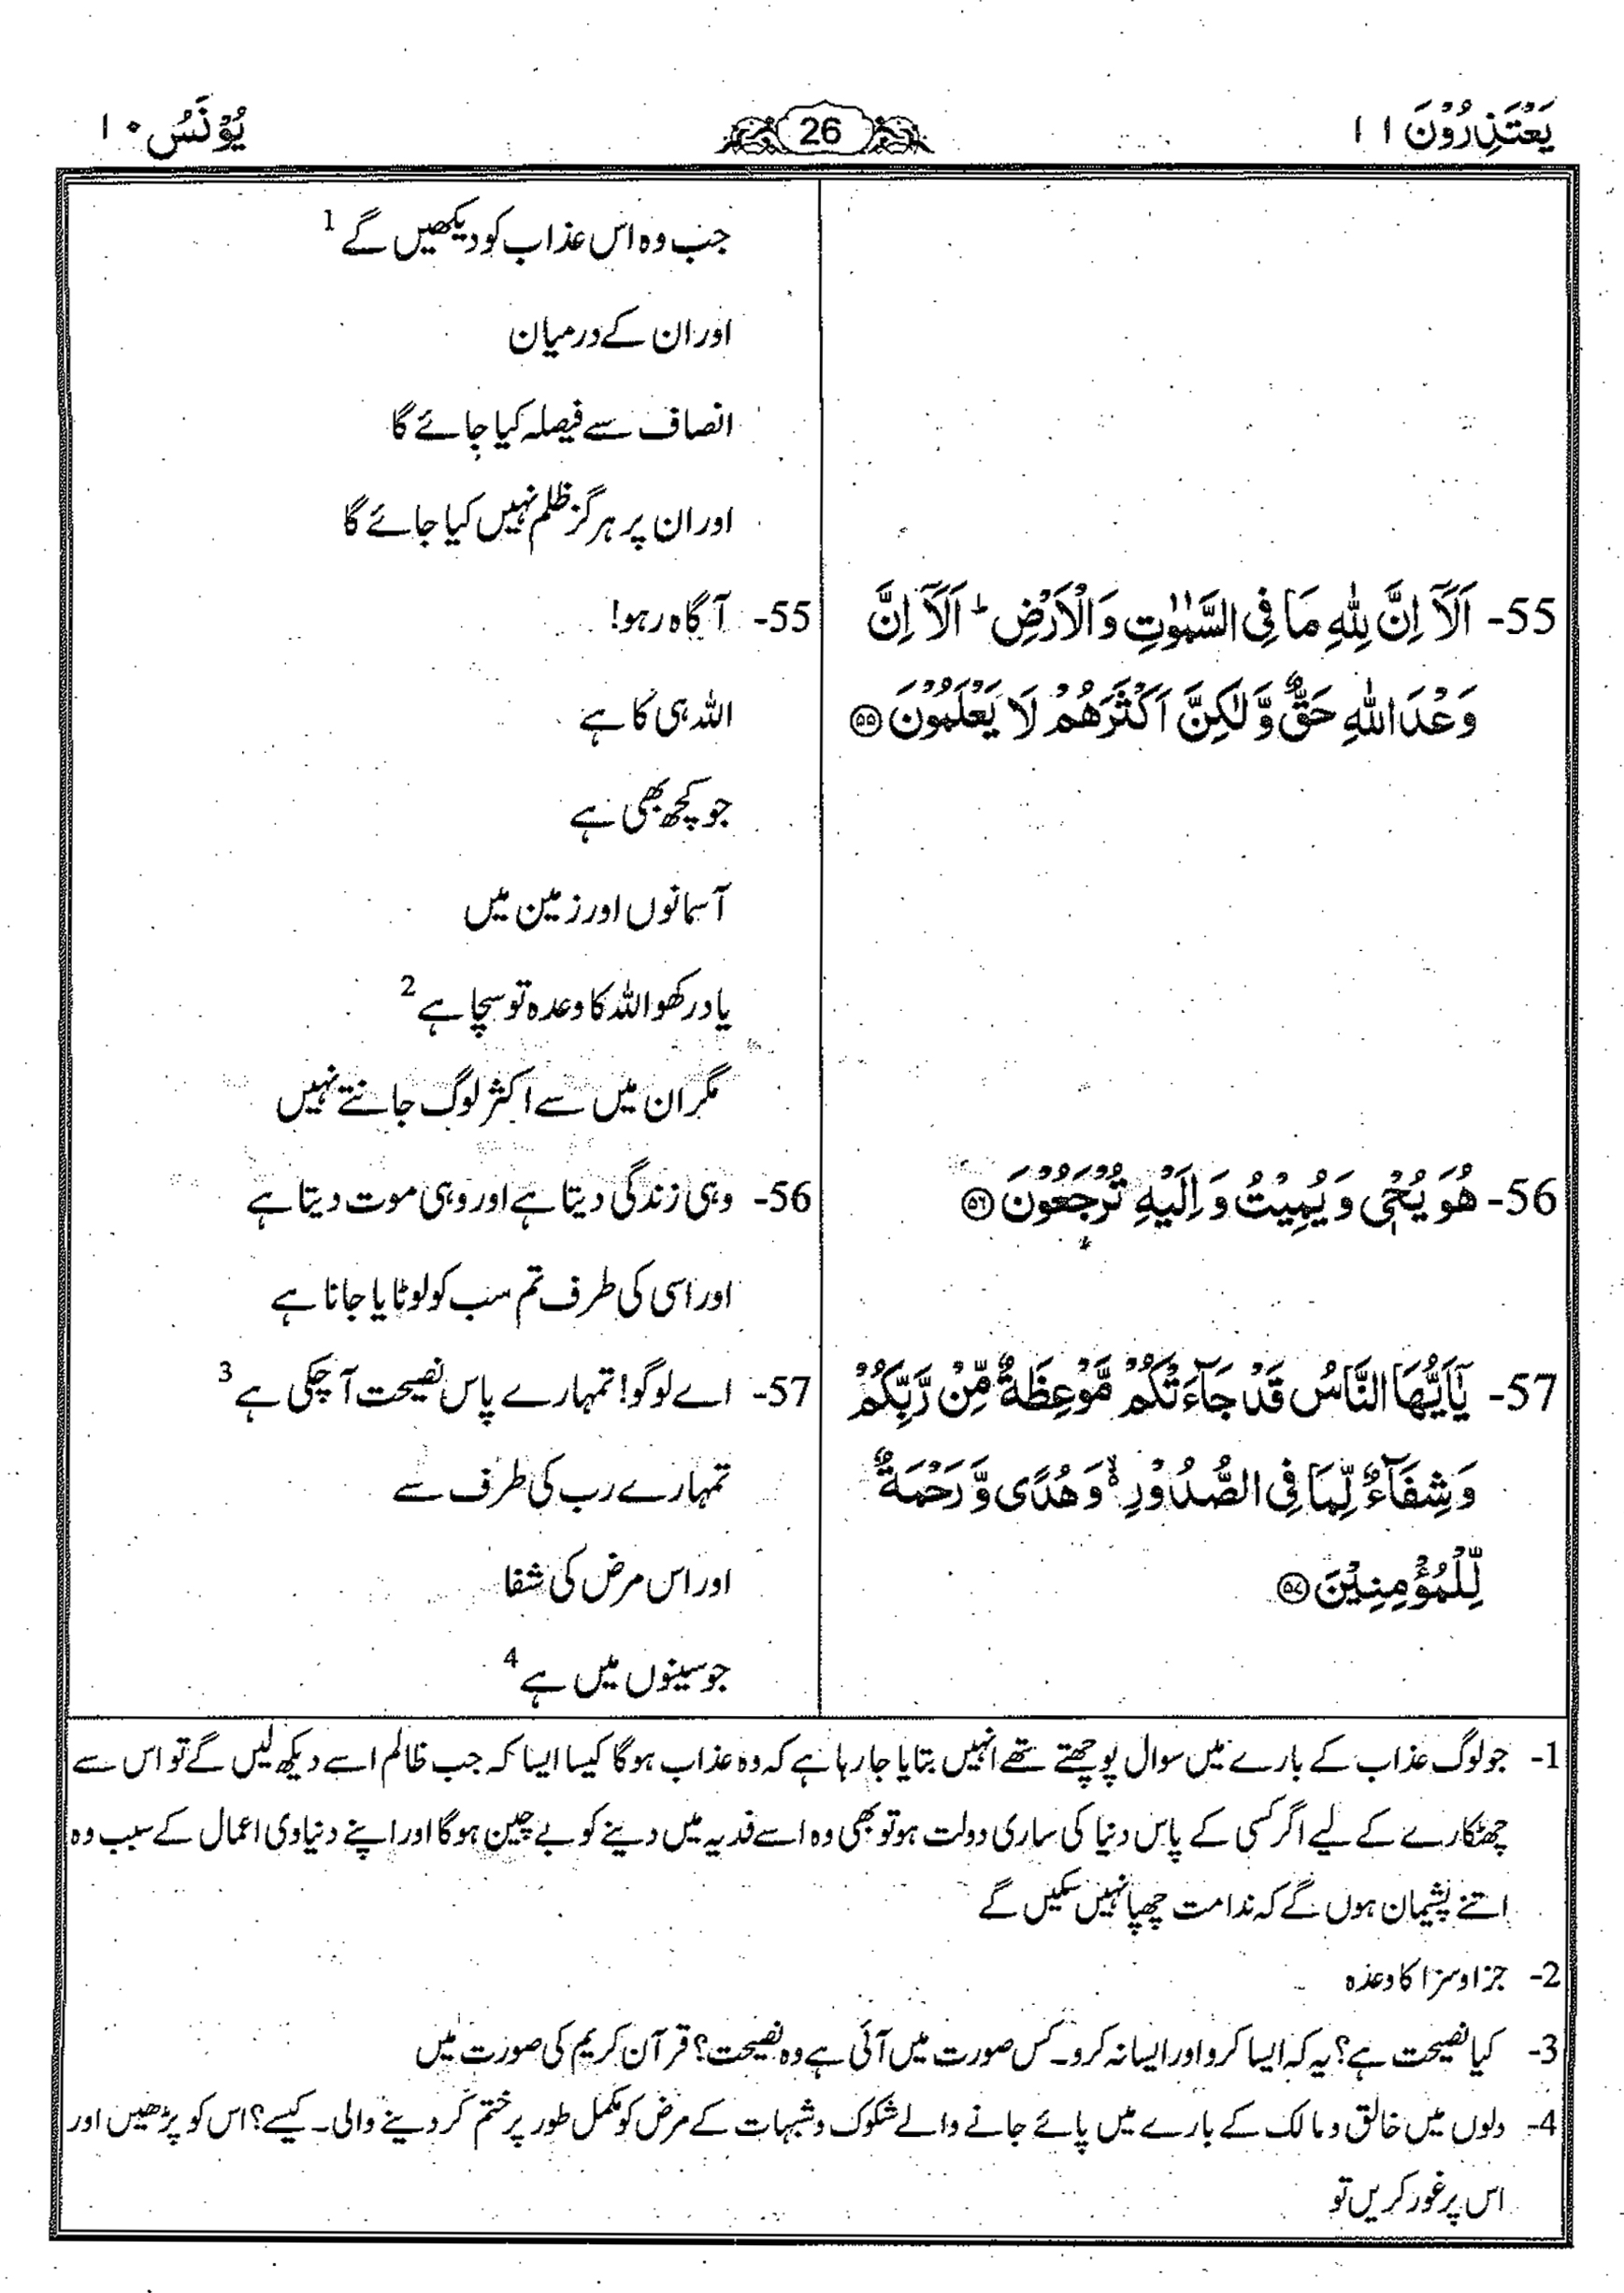 یَعْتَذِرُوْنَ ۱۱
26
یُوْنَسُ ۱۰
جب وہ اس عذاب کو دیکھیں گے 1
اور ان کے درمیان
انصاف سے فیصلہ کیا جائے گا
اور ان پر ہرگز ظلم نہیں کیا جائے گا
55- اَلَاۤ اِنَّ لِلّٰهِ مَا فِی السَّمٰوٰتِ وَ الْاَرْضِ ؕ اَلَاۤ اِنَّ
وَعْدَ اللّٰهِ حَقٌّ وَّ لٰكِنَّ اَكْثَرَهُمْ لَا یَعْلَمُوْنَ ۝۵۵
55- آگاہ رہو!
اللہ ہی کا ہے
جو کچھ بھی ہے
آسمانوں اور زمین میں
یاد رکھو اللہ کا وعدہ تو سچا ہے 2
مگر ان میں سے اکثر لوگ جانتے نہیں
56- هُوَ یُحْیٖ وَ یُمِیْتُ وَ اِلَیْهِ تُرْجَعُوْنَ ۝۵۶
56- وہی زندگی دیتا ہے اور وہی موت دیتا ہے
اور اسی کی طرف تم سب کو لوٹایا جانا ہے
57- یٰۤاَیُّهَا النَّاسُ قَدْ جَآءَتْكُمْ مَّوْعِظَةٌ مِّنْ رَّبِّكُمْ
وَ شِفَآءٌ لِّمَا فِی الصُّدُوْرِ ۙ۬ وَ هُدًی وَّ رَحْمَةٌ
لِّلْمُؤْمِنِیْنَ ۝۵۷
57- اے لوگو! تمہارے پاس نصیحت آ چکی ہے 3
تمہارے رب کی طرف سے
اور اس مرض کی شفا
جو سینوں میں ہے 4
1- جو لوگ عذاب کے بارے میں سوال پوچھتے تھے انہیں بتایا جا رہا ہے کہ وہ عذاب ہوگا کیسا ایسا کہ جب ظالم اسے دیکھ لیں گے تو اس سے
چھٹکارے کے لیے اگر کسی کے پاس دنیا کی ساری دولت ہو تو بھی وہ اسے فدیہ میں دینے کو بے چین ہوگا اور اپنے دنیاوی اعمال کے سبب وہ
اتنے پشیمان ہوں گے کہ ندامت چھپا نہیں سکیں گے
2- جزا و سزا کا وعدہ
3- کیا نصیحت ہے؟ یہ کہ ایسا کرو اور ایسا نہ کرو۔ کس صورت میں آئی ہے وہ نصیحت؟ قرآن کریم کی صورت میں
4- دلوں میں خالق و مالک کے بارے میں پائے جانے والے شکوک و شبہات کے مرض کو مکمل طور پر ختم کر دینے والی۔ کیسے؟ اس کو پڑھیں اور
اس پر غور کریں تو